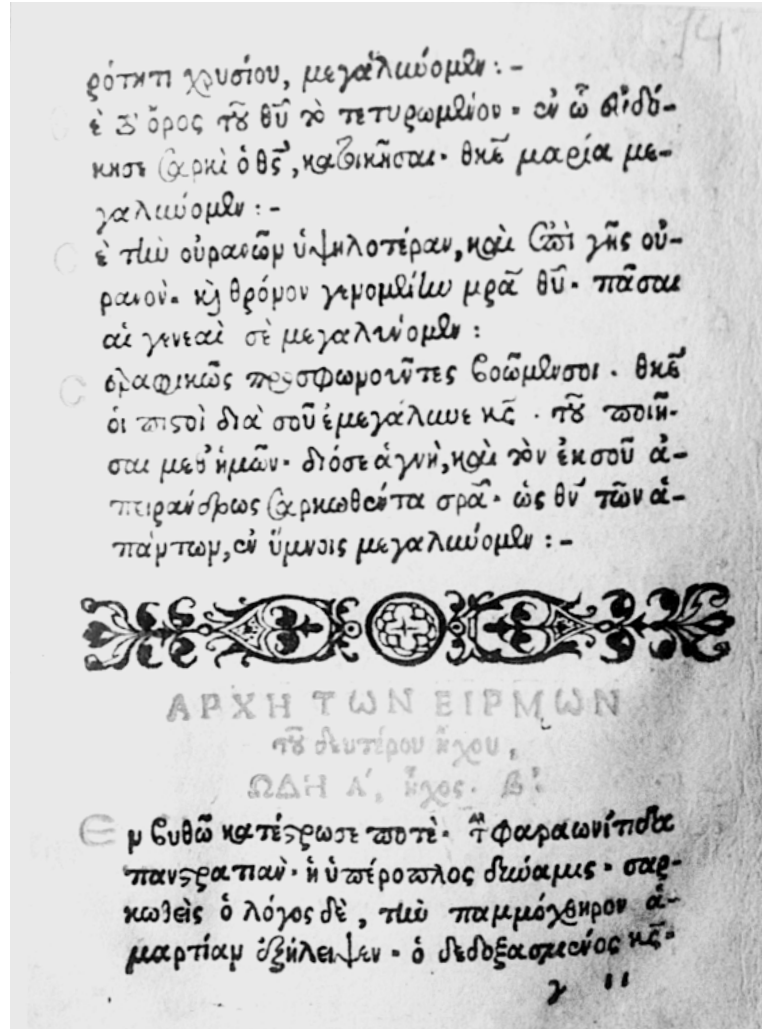 ρότητι χρυσίου, μεγαλύνομεν :-
σὲ τ̀ ὄρος τοῦ θῦ τὸ τετυρωμένον· ἐν ᾧ εὐδό-
κησε σαρκὶ ὁ θς̃, κατοικῆσαι· θκε̃ μαρία με-
γαλύνομεν :-
Σὲ τὴν οὐρανῶν ὑψηλοτέραν, καὶ ἐπὶ γῆς οὐ-
ρανὸν· κὶ θρόνον γενομένην μρ̃α θῦ· πᾶσαι
αἱ γενεαὶ σὲ μεγαλύνομεν :
Σεραφικῶς προσφωνοῦντες βοῶμέν σοι· θκε̃
οἱ πιστοὶ διὰ σοῦ ἐμεγάλυνε κς̃· τοῦ ποιῆ-
σαι μεθ' ἡμῶν· διό σε ἁγνὴ, καὶ τὸν ἐκ σοῦ ἀ-
πειράνδρως σαρκωθέντα σρ̃α· ὡς θν̃ τῶν ἁ-
πάντων, ἐν ὕμνοις μεγαλύνομεν :-
ΑΡΧΗ ΤΩΝ ΕΙΡΜΩΝ
τοῦ δευτέρου ἤχου,
ΩΔΗ Α΄, ἦχος. β΄.
Εν βυθῷ κατέστρωσε ποτὲ· τὴν φαραωνίτιδα
πανστρατιὰν· ἡ ὑπέροπλος δύναμις· σαρ-
κωθεὶς ὁ λόγος δὲ, τὴν παμμόχθηρον ἁ-
μαρτίαν ἐξήλειψεν· ὁ δεδοξασμένος κς̃·
γ ιι